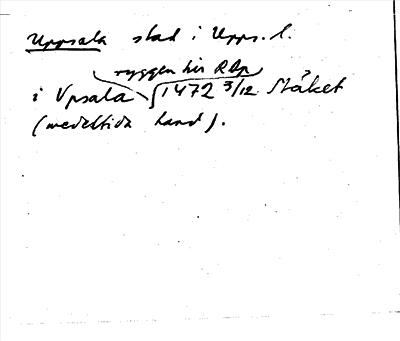 Uppsala stad i Upps. l.
ryggen his RAp
i Vpsala 1472 3/12 Stäket
(medeltida hand).